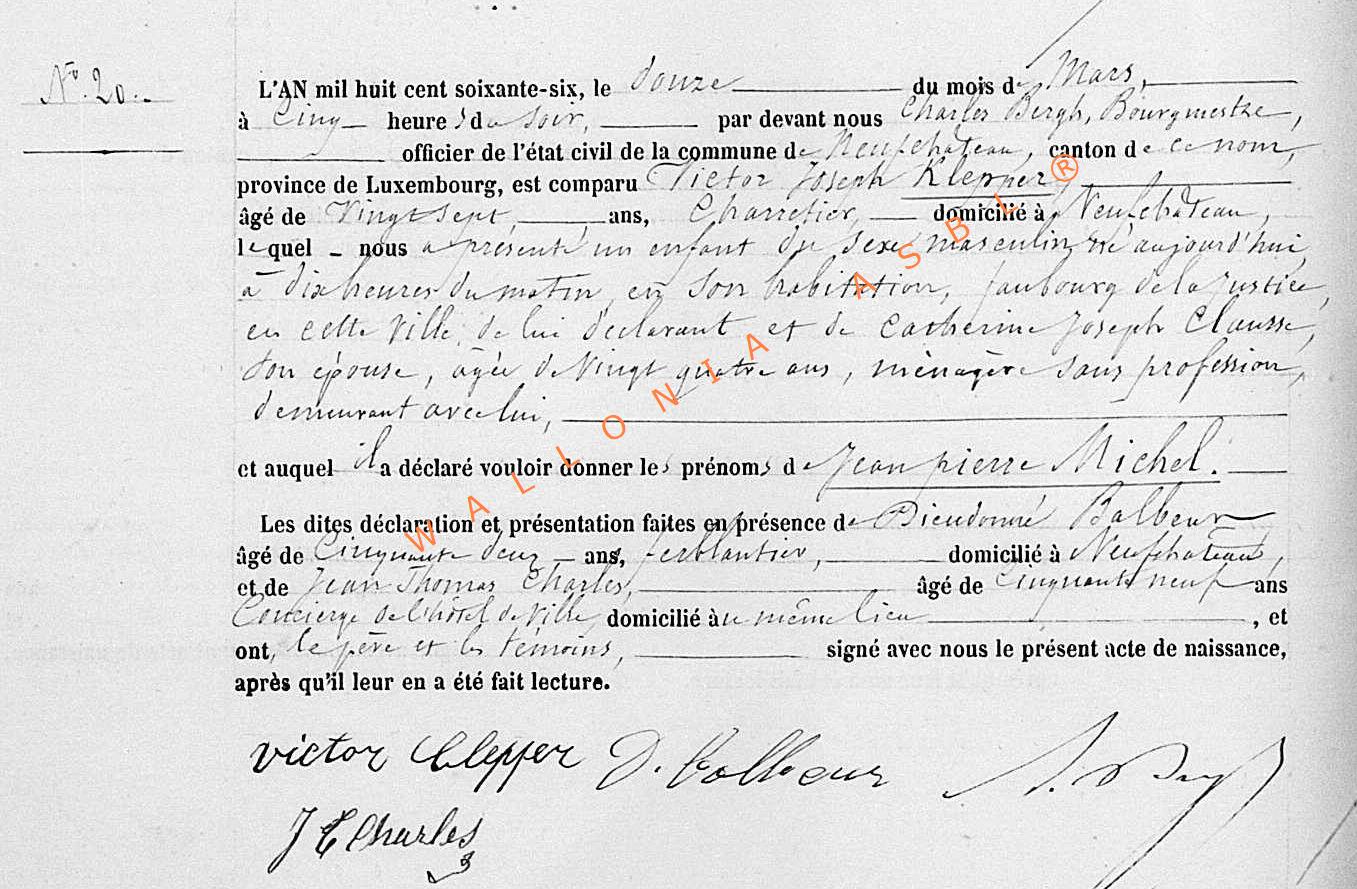 N° 20.
L'AN mil huit cent soixante-six, le douze du mois de Mars,
à Cinq heures du soir, par devant nous Charles Bergh, Bourgmestre,
officier de l'état civil de la commune de Neufchâteau, canton de ce nom,
province de Luxembourg, est comparu Victor Joseph Klepper,
âgé de Vingt sept ans, Charretier, domicilié à Neufchâteau,
lequel nous a présenté un enfant du sexe masculin né aujourd'hui
à dix heures du matin, en son habitation, faubourg de la justice,
en cette ville, de lui déclarant et de Catherine Joseph Clausse,
son épouse, agée de Vingt quatre ans, ménagère sans profession,
demeurant avec lui,
et auquel il a déclaré vouloir donner les prénoms de Jean pierre Michel.
Les dites déclaration et présentation faites en présence de Dieudonné Balbeur
âgé de Cinquante deux ans, ferblantier, domicilié à Neufchateau,
et de Jean Thomas Charles, âgé de Cinquante neuf ans
Concierge de l'hôtel de Ville, domicilié àu même lieu, et
ont, le père et les témoins, signé avec nous le présent acte de naissance,
après qu'il leur en a été fait lecture.
victor Clepper D. Balbeur
J T Charles
WALLONIA ASBL ®